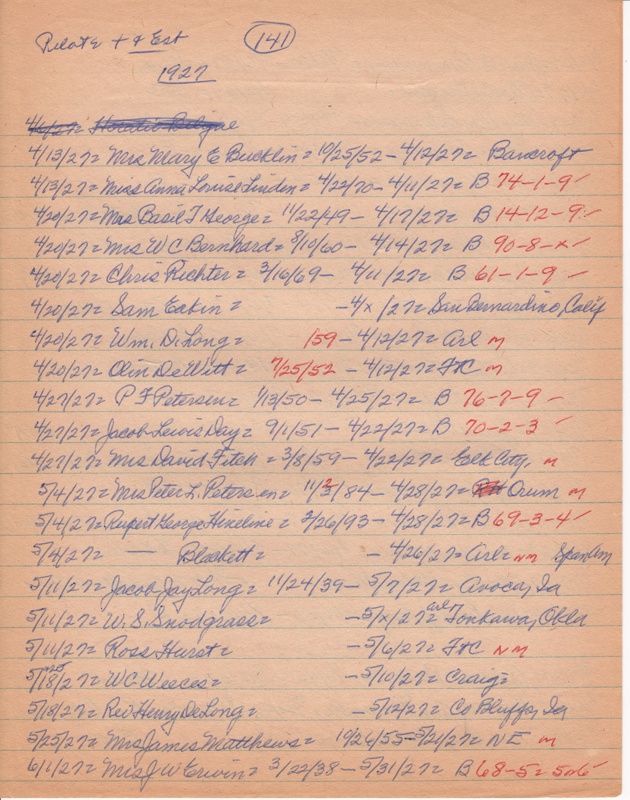 Pilot & + & Est (141)
1927
4/6/27=
4/13/27= Mrs Mary E Bucklin = 10/25/52 - 4/12/27= Bancroft
4/13/27= Miss Anna Louise Linden= 4/22/70 - 4/11/27= B 74-1-9 ✓
4/20/27= Mrs Basil T George= 11/22/49 - 4/17/27= B 14-12-9 ✓
4/20/27= Mrs W C Bernhard= 8/10/60 - 4/14/27= B 90-8-x ✓
4/20/27= Chris Richter = 3/16/69 - 4/11/27= B 61-1-9 ✓
4/20/27= Sam Eakin= - 4/x/27= San Bernardino, Calif
4/20/27= Wm. D. Long= /59 - 4/12/27= Arl M
4/20/27= Olin DeWitt= 7/25/52 - 4/12/27= FtC M
4/27/27= P F Petersen= 1/13/50 - 4/25/27= B 76-7-9 ✓
4/27/27= Jacob Lewis Day= 9/1/51 - 4/22/27= B 70-2-3 ✓
4/27/27= Mrs David Fitch= 3/8/59 - 4/22/27= Elk City, M
5/4/27= Mrs Peter L. Petersen= 11/2/84 - 4/28/27= Orum M
5/4/27= Rupert George Hineline= 2/26/93 - 4/28/27= B 69-3-4 ✓
5/4/27= — Blackett= - 4/26/27= Arl= NM Span Am
5/11/27= Jacob Jay Long= 11/24/39 - 5/7/27= Avoca, Ia
5/11/27= W. S. Snodgrass= - 5/x/27= Arl Tonkawa, Okla
5/11/27= Ross Hurst= - 5/6/27= FtC NM
5/18/27= W C Weeces= - 5/10/27= Craig=
5/18/27= Rev Henry DeLong= - 5/12/27= Co Bluffs, Ia
5/25/27= Mrs James Matthews= 10/26/55 - 5/21/27= NE M
6/1/27= Mrs J W Erwin= 3/22/38 - 5/31/27= B 68-5=